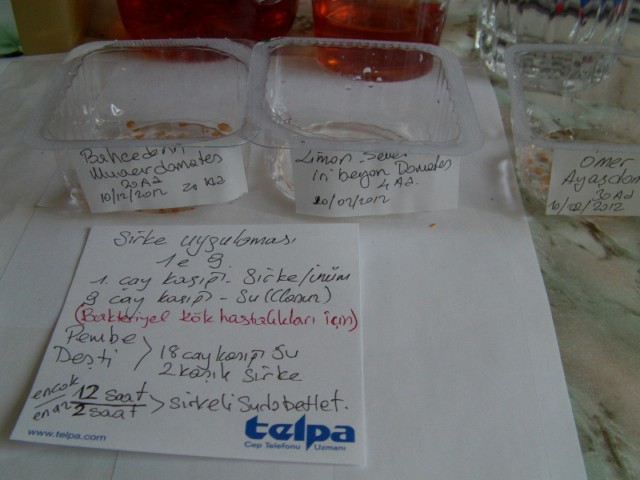 Bahcedenin
Muaer domates
20 Ad
10/02/2012
Limon Seven
in beyan Domates
4 Ad.
10/02/2012
Ömer
Ayasdom
30 Ad
10/02/2012
Sirke uygulaması
1 e 9
1. çay kaşığı - Sirke/üzüm
9 çay kaşığı - Su (Closun)
(Bakteriyel kök hastalıkları için)
Pembe
Deşti > 18 çay kaşığı su
2 kaşık Sirke
encok 12 saat
en az 2 saat > Sirkeli Suda beklet.
www.telpa.com
telpa
Cep Telefonu Uzmanı